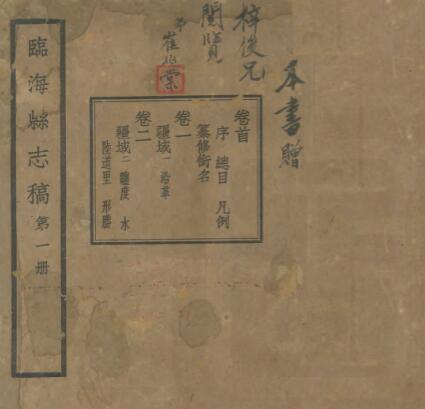 本書贈
梓俊兄
閱覽
弟崔
棠
卷首
序 總目 凡例
纂修銜名
卷一
疆域一 沿革
卷二
疆域二 躔度 水
陸道里 形勝
臨海縣志稿 第一册